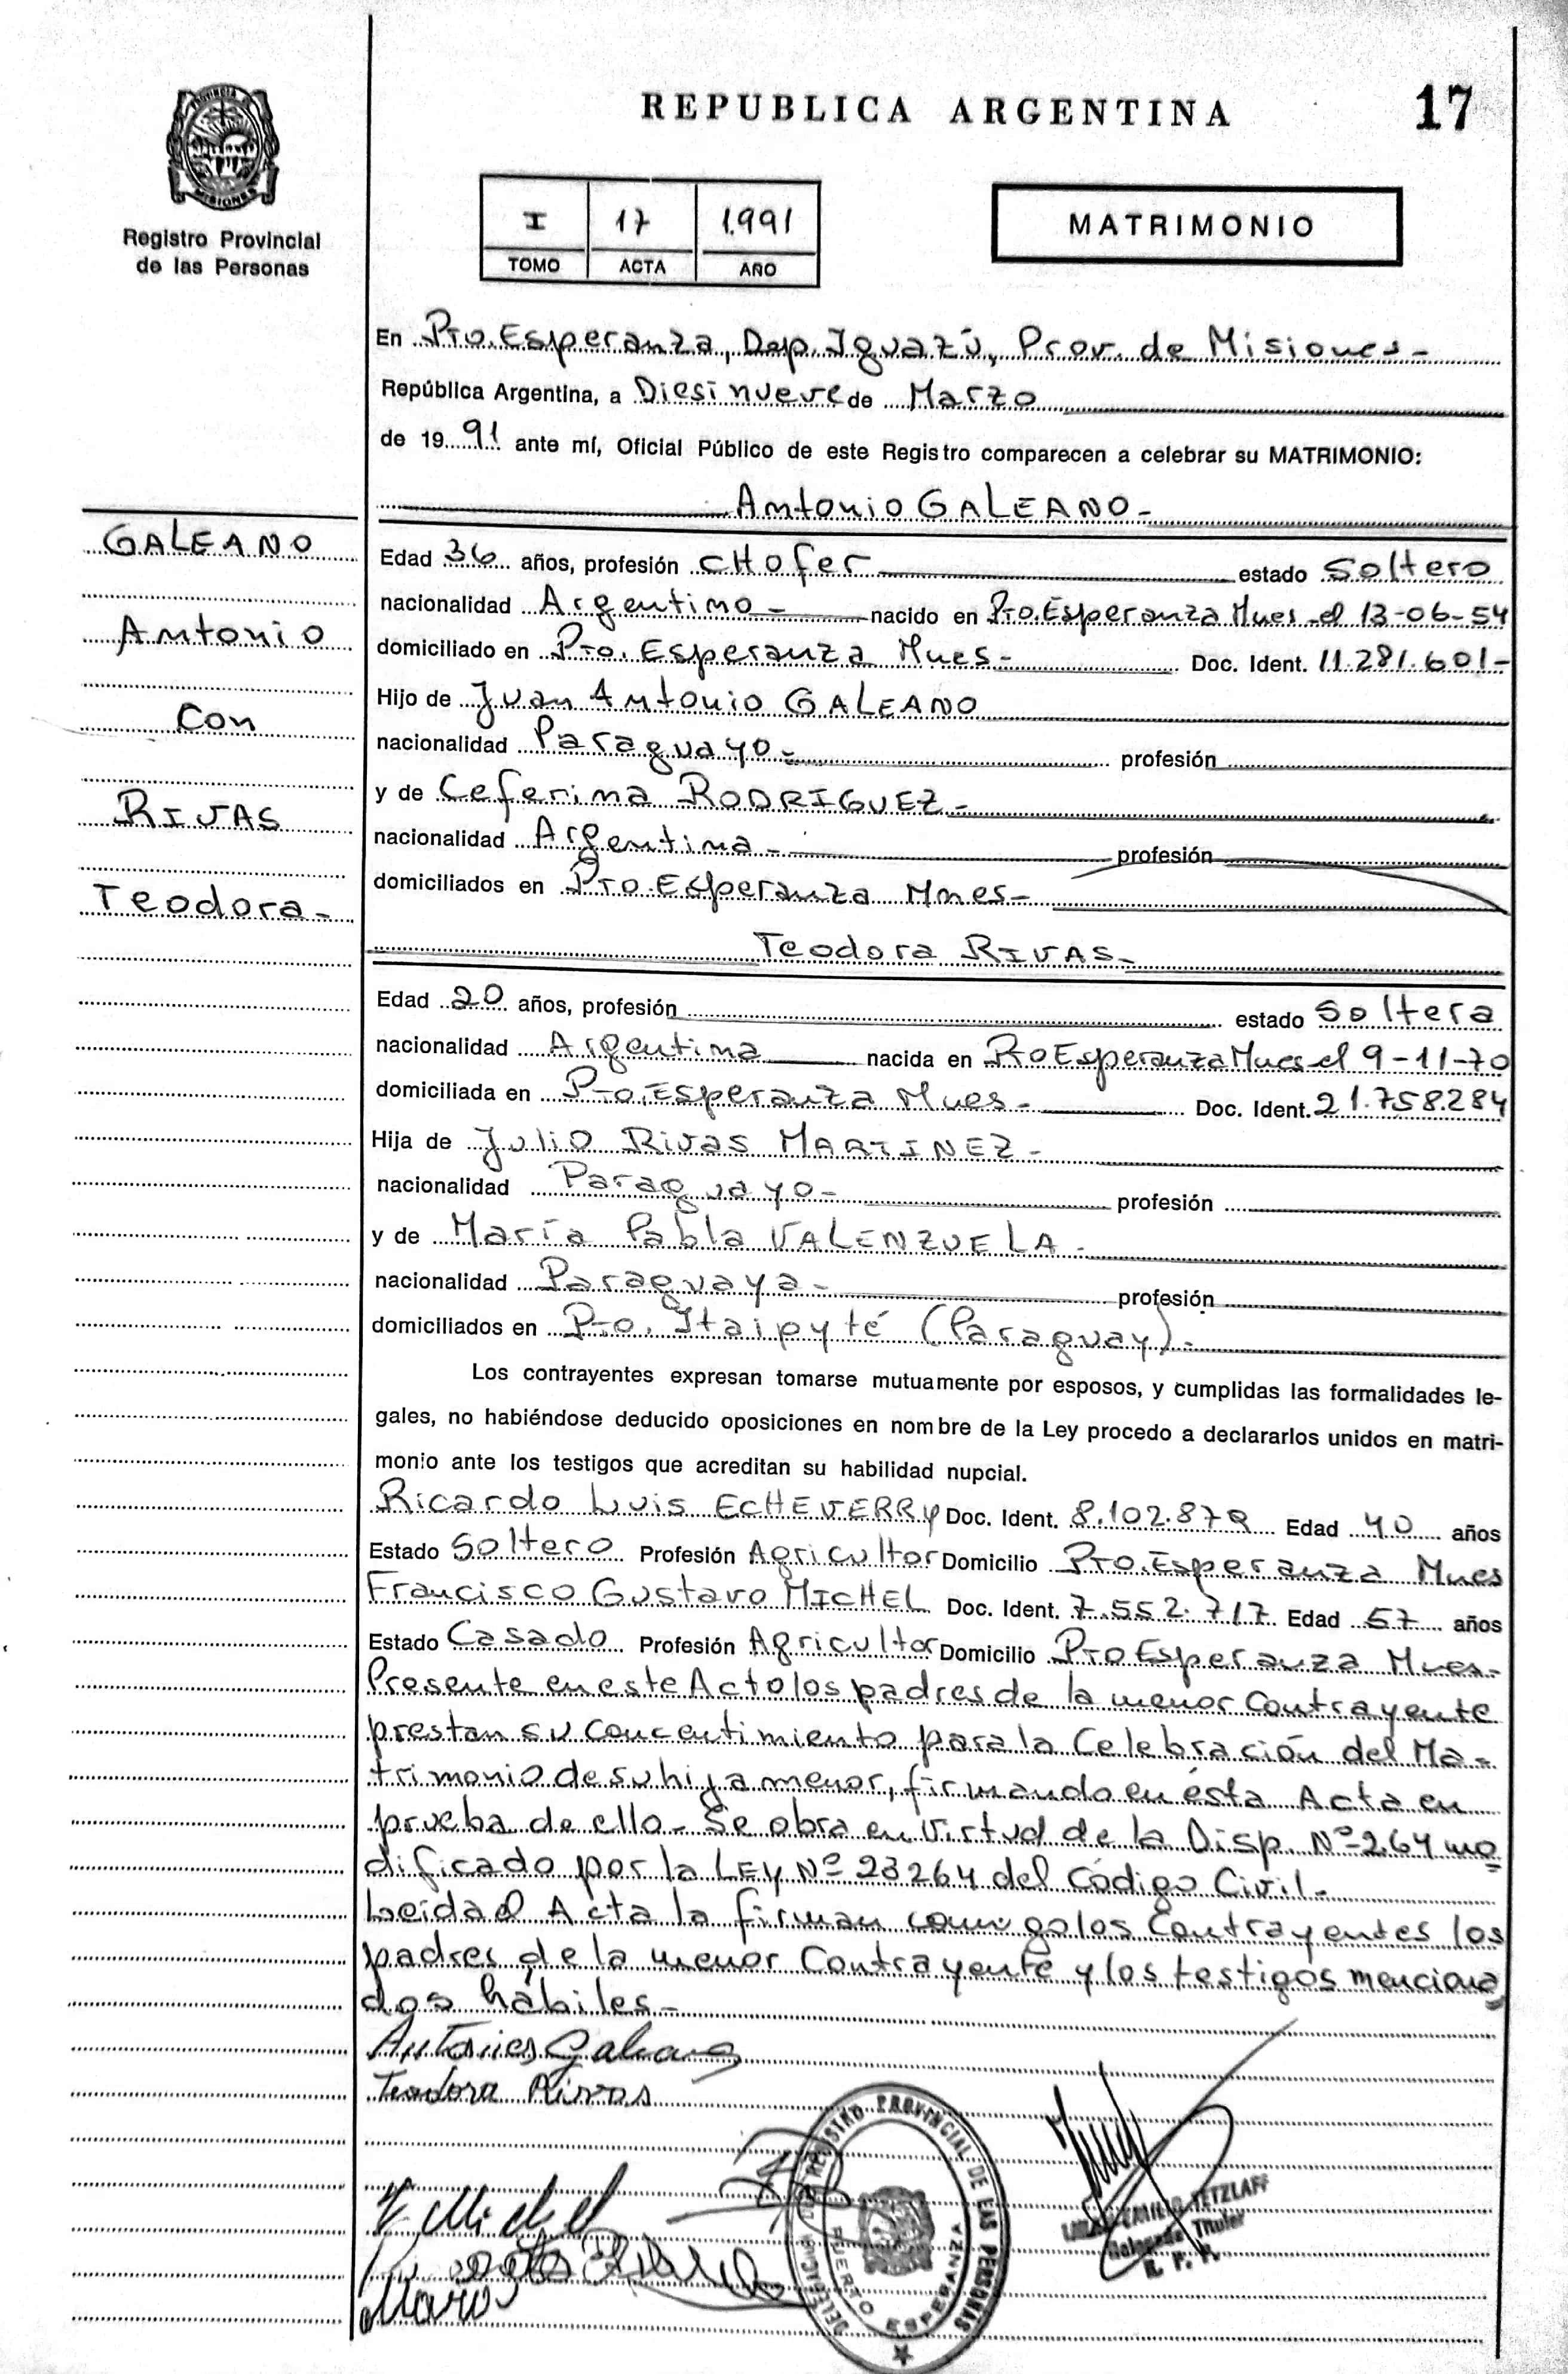 REPUBLICA ARGENTINA
17
PROVINCIA DE
MISIONES
Registro Provincial
de las Personas
I 17 1.991
TOMO ACTA AÑO
MATRIMONIO
En Pto. Esperanza, Dep. Iguazú, Prov. de Misiones-
República Argentina, a Diesinueve de Marzo
de 1991 ante mí, Oficial Público de este Registro comparecen a celebrar su MATRIMONIO:
Antonio GALEANO-
GALEANO
Antonio
Con
RIVAS
Teodora-
Edad 36 años, profesión CHofer estado Soltero
nacionalidad Argentino- nacido en Pto. Esperanza Mnes el 13-06-54
domiciliado en Pto. Esperanza Mnes- Doc. Ident. 11.281.601-
Hijo de Juan Antonio GALEANO
nacionalidad Paraguayo- profesión
y de Ceferina RODRIGUEZ-
nacionalidad Argentina- profesión
domiciliados en Pto. Esperanza Mnes-
Teodora RIVAS-
Edad 20 años, profesión estado Soltera
nacionalidad Argentina nacida en Pto Esperanza Mnes el 9-11-70
domiciliada en Pto. Esperanza Mnes- Doc. Ident. 21.758.284
Hija de Julio Rivas MARTINEZ-
nacionalidad Paraguayo- profesión
y de María Pabla VALENZUELA-
nacionalidad Paraguaya- profesión
domiciliados en Pto. Itaipyté (Paraguay)-
Los contrayentes expresan tomarse mutuamente por esposos, y cumplidas las formalidades le-
gales, no habiéndose deducido oposiciones en nombre de la Ley procedo a declararlos unidos en matri-
monio ante los testigos que acreditan su habilidad nupcial.
Ricardo Luis ECHEVERRY Doc. Ident. Edad 40 años
Estado Soltero Profesión Agricultor Domicilio Pto. Esperanza Mnes
Francisco Gustavo MICHEL Doc. Ident. 7.552.717 Edad 57 años
Estado Casado Profesión Agricultor Domicilio Pto Esperanza Mnes-
Presente en este Acto los padres de la menor Contrayente
prestan su concentimiento para la Celebración del Ma-
trimonio de su hija menor, firmando en ésta Acta en
prueba de ello- Se obra en virtud de la Disp. Nº 264 mo
dificado por la LEY Nº 23264 del Código Civil-
Leida el Acta la firman conmigo los Contrayentes los
padres de la menor Contrayente y los testigos menciona
dos hábiles-
Antonio Galeano
Teodora Rivas
F. Michel
DELEGACION REGISTRO PROVINCIAL DE LAS PERSONAS
PUERTO ESPERANZA
TETZLAFF
Delegado Titular
R. P. P.